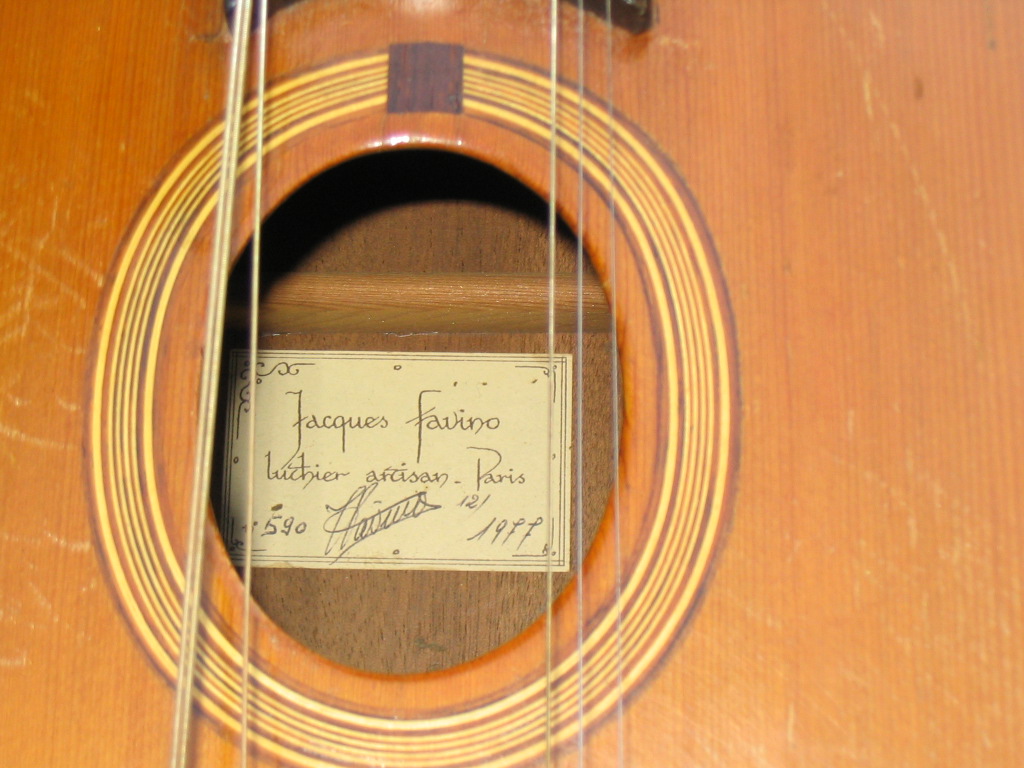 Jacques Favino
luthier artisan - Paris
n° 590 JFavino 12/1977